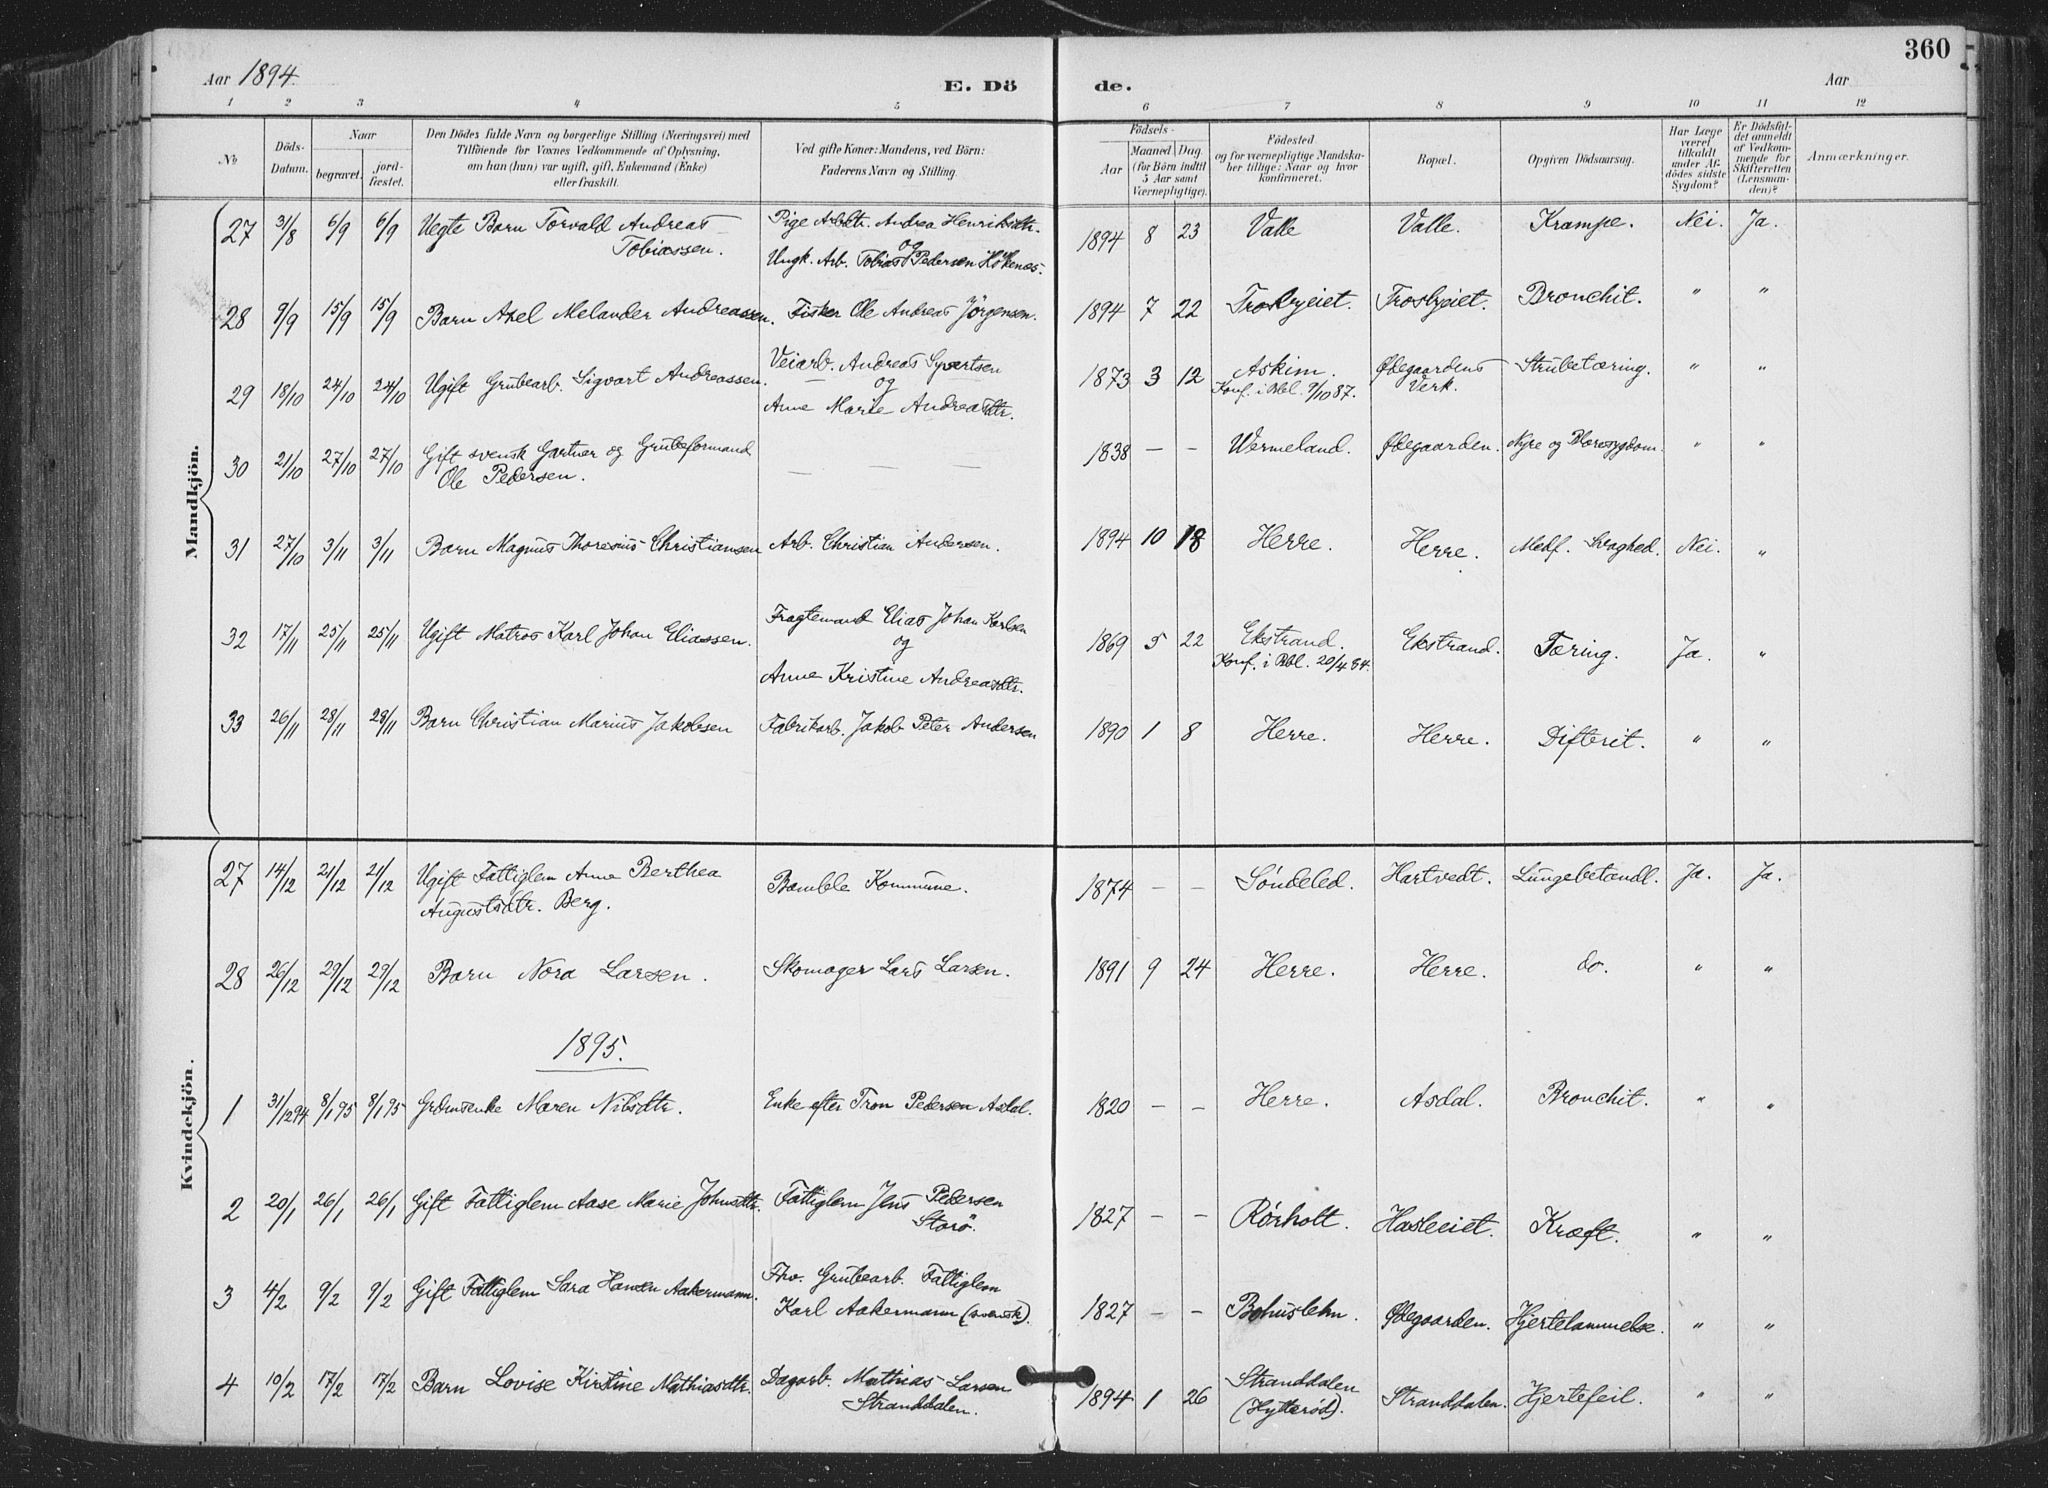 360
Aar 1894.
E. Dö
de.
Aar
1 2 3 4 5 6 7 8 9 10 11 12
No
Döds-Datum.
Naar
begravet.
jord-fæstet.
Den Dödes fulde Navn og borgerlige Stilling (Næringsvei) med
Tilföiende for Voxnes Vedkommende af Oplysning,
om han (hun) var ugift, gift, Enkemand (Enke)
eller fraskilt.
Ved gifte Koner: Mandens, ved Börn:
Faderens Navn og Stilling.
Födsels-
Aar
Maaned. Dag.
(for Börn indtil
5 Aar samt
Værnepligtige).
Födested
og for værnepligtige Mandska-
ber tillige: Naar og hvor
konfirmeret.
Bopæl.
Opgiven Dödsaarsag.
Har Læge
været
tilkaldt
under Af-
dödes sidste
Sygdom?
Er Dödsfal-
det anmeldt
af Vedkom-
mende for
Skifteretten
(Lensman-
den)?
Anmærkninger.
Mandkjön.
27 31/8 6/9 6/9 Uegte Barn Torvald Andreas Pige Arbdtr. Andrea Henriksdtr. 1894 8 23 Valle Valle. Krampe. Nei. Ja.
Tobiassen. og
Ungk. Arb. Tobias Pedersen Hökenes.
28 9/9 15/9 15/9 Barn Axel Melander Andreassen. Fisker Ole Andreas Jörgensen. 1894 7 22 Trosbyeiet. Trosbyeiet. Bronchit. " "
29 18/10 24/10 24/10 Ugift Grubearb. Sigvart Andreassen. Veiarb. Andreas Syvertsen 1873 3 12 Askim. Ødegaardens Strubetæring. " "
og Konf. i Bbl. 9/10 87. Verk.
Anne Marie Andreasdtr.
30 21/10 27/10 27/10 Gift svensk Gartner og Grubeformand — — — 1838 — — Wermeland. Ødegaarden. Nyre og Blæresygdom. " "
Ole Pedersen.
31 27/10 3/11 3/11 Barn Magnus Thoresius Christiansen Arb. Christian Andersen. 1894 10 18 Herre. Herre. Medf. Svaghed. Nei. "
32 17/11 25/11 25/11 Ugift Matros Karl Johan Eliassen. Fragtemand Elias Johan Karlsen 1869 5 22 Ekstrand. Ekstrand. Tæring. Ja. "
og Konf. i Bbl. 20/4 84.
Anne Kristine Andreasdtr.
33 26/11 28/11 28/11 Barn Christian Marius Jakobsen Fabrikarb. Jakob Peter Andersen 1890 1 8 Herre. Herre. Difterit. " "
Kvindekjön.
27 14/12 21/12 21/12 Ugift Fattiglem Anne Berthea Bamble Kommune. 1874 — — Söndeled. Hartvedt. Lungebetændl. Ja. Ja.
Augustsdtr. Berg.
28 26/12 29/12 29/12 Barn Nora Larsen. Skomager Lars Larsen. 1891 9 24 Herre. Herre. do. " "
1895.
1 31/12 94 8/1 95 8/1 95 Grdmsenke Maren Nilsdtr. Enke efter Tron Pedersen Asdal. 1820 — — Herre. Asdal. Bronchit. " "
2 20/1 26/1 26/1 Gift Fattiglem Aase Marie Johnsdtr. Fattiglem Jens Pedersen 1827 — — Rørholt. Hasleeiet. Kræft. " "
Storö.
3 4/2 9/2 9/2 Gift Fattiglem Sara Hansen Aakermann. Fhv. Grubearb. Fattiglem 1827 — — Bohuslehn. Ødegaarden. Hjertelammelse. " "
Karl Aakermann (svensk).
4 10/2 17/2 17/2 Barn Lovise Kirstine Mathiasdtr. Dagarb. Mathias Larsen 1894 1 26 Stranddalen Stranddalen. Hjertefeil. " "
Stranddalen. (Hytterød).